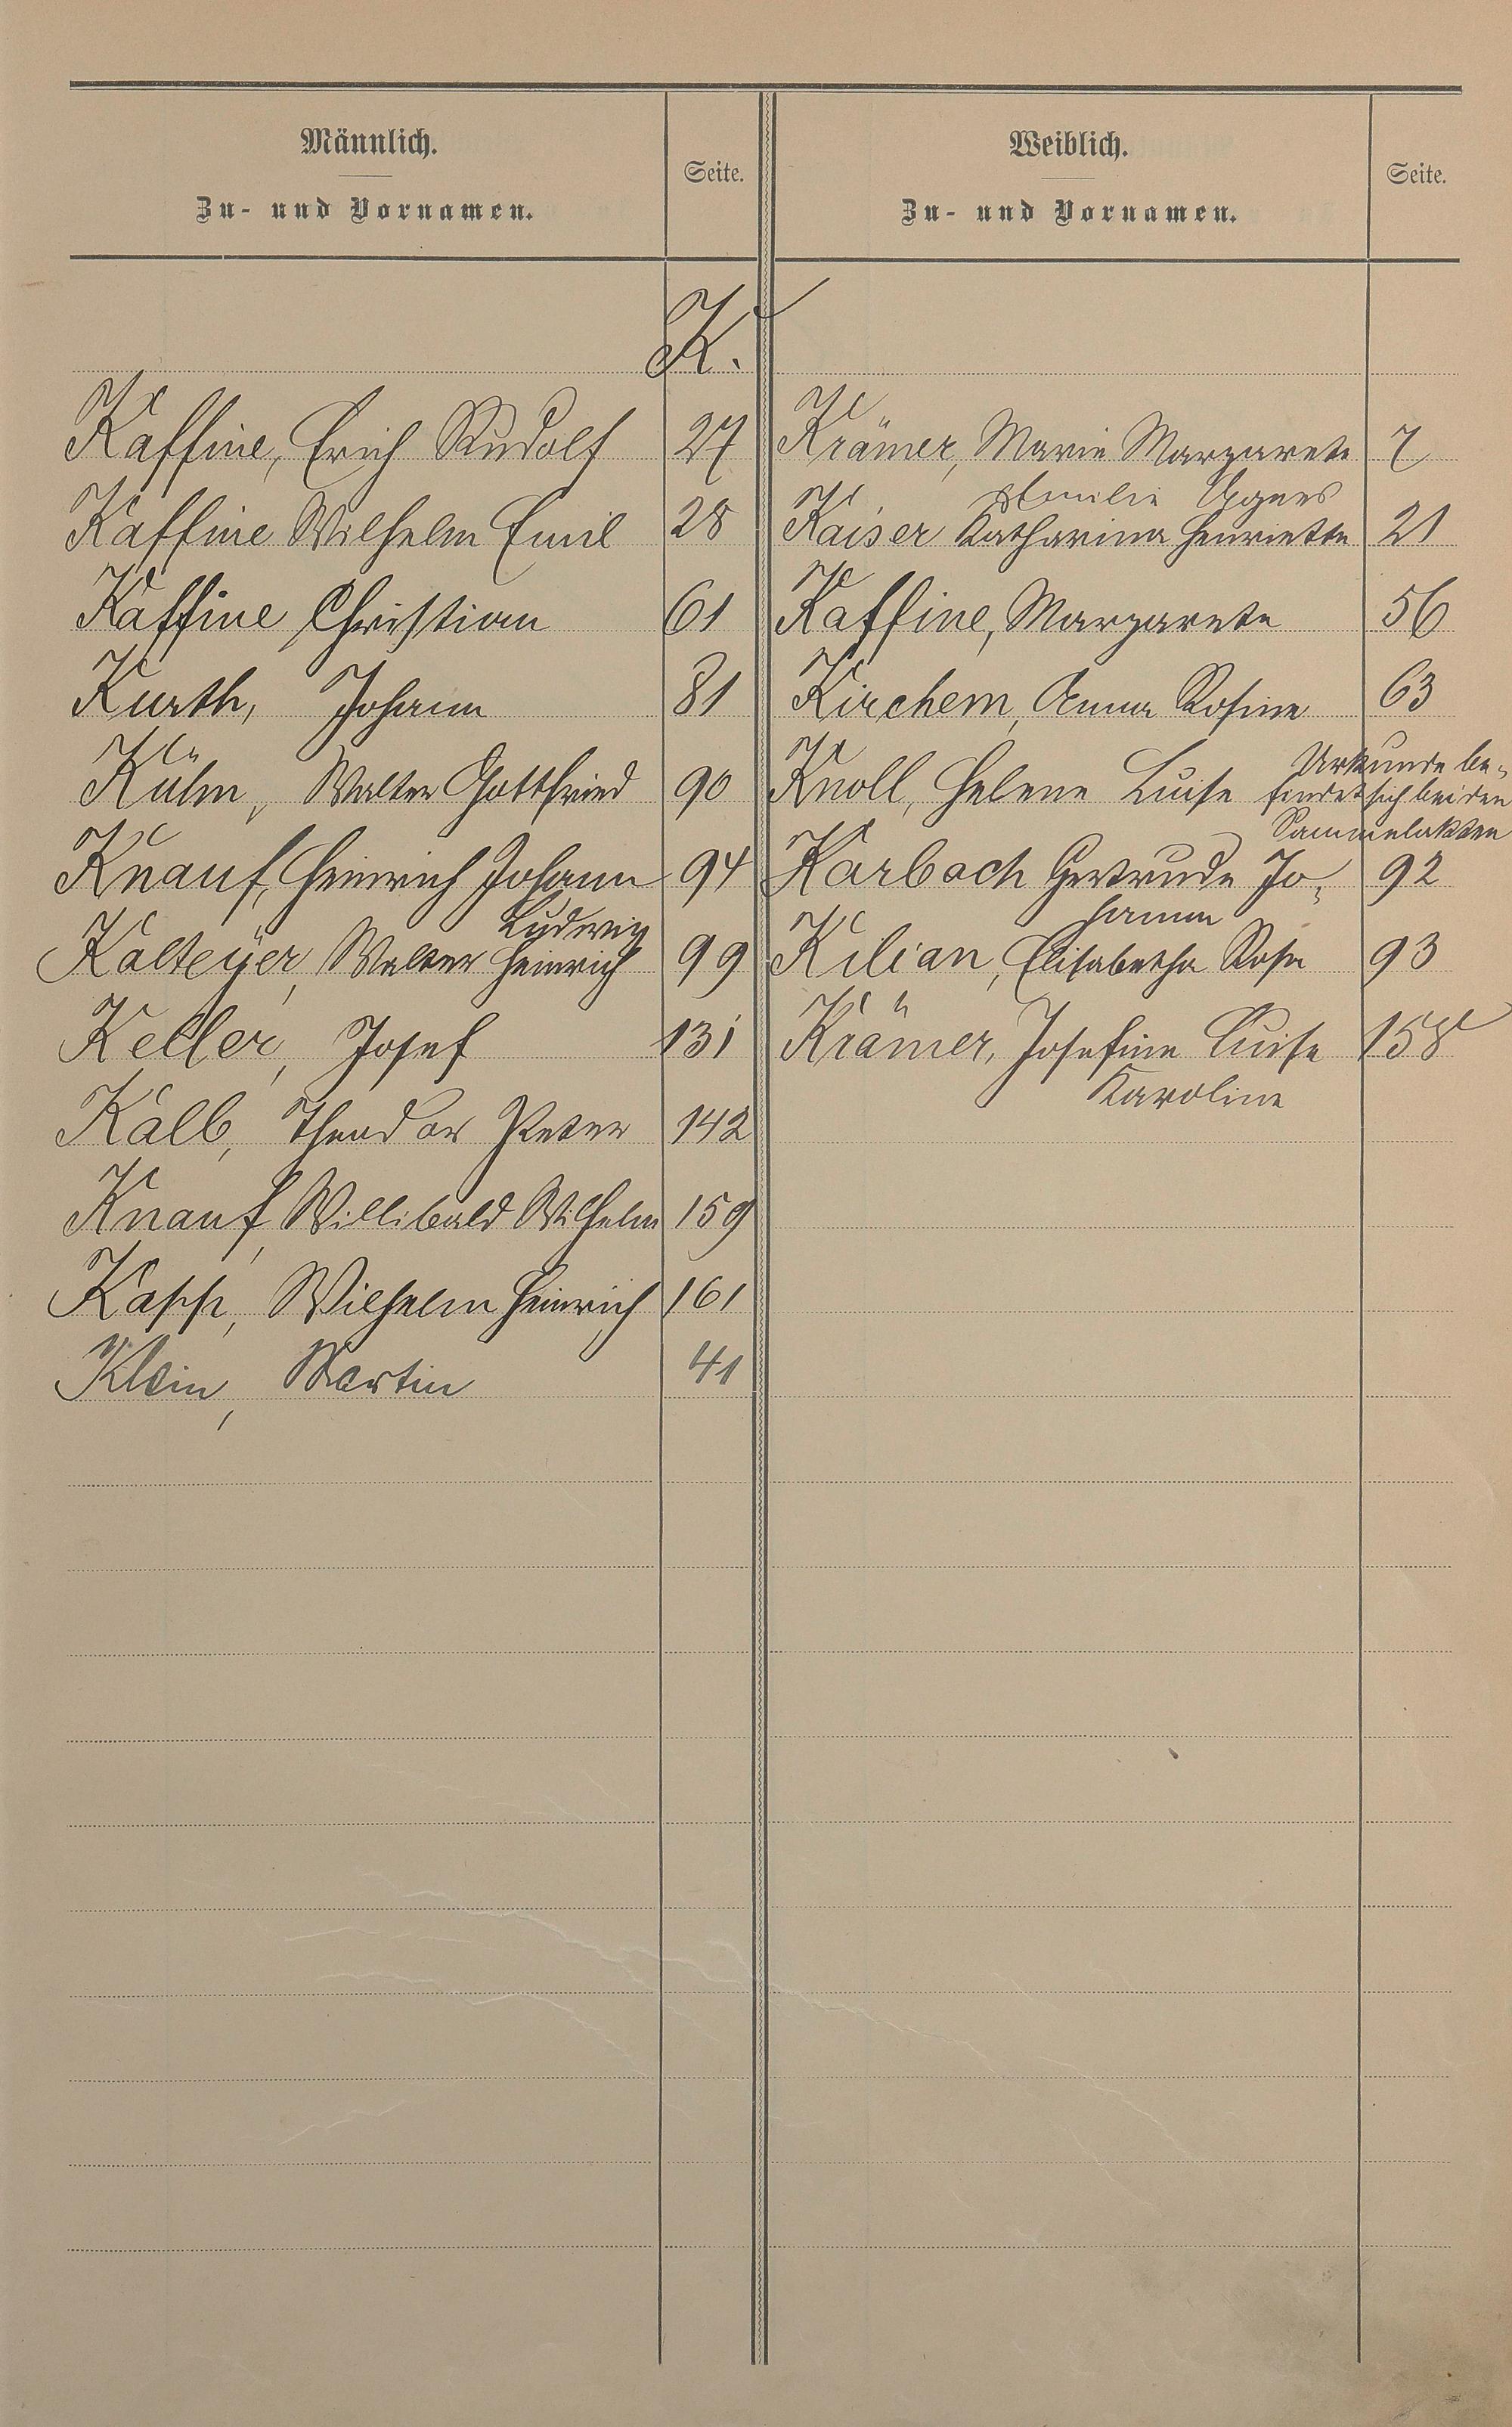 Männlich.
Zu- und Vornamen.
Seite.
Weiblich.
Zu- und Vornamen.
Seite.
K.
Kaffine, Erich Rudolf 27
Kaffine Wilhelm Emil 28
Kaffine, Christian 61
Kurth, Johann 81
Kühn, Walter Gottfried 90
Knauf, Heinrich Johann 94
Ludwig
Kalteyer, Walter Heinrich 99
Keller, Josef 131
Kalb, Theodor Peter 142
Knauf, Willibald Wilhelm 159
Kapp, Wilhelm Heinrich 161
Klein, Martin 41
Krämer, Marie Margarete 7
Emilie Agnes
Kaiser Katharina Henriette 21
Kaffine, Margarete 56
Kirchem, Anna Rosine 63
Urkunde be-
Knoll, Helene Luise findet sich bei den
Sammelakten
Karbach Gertrude Jo- 92
hanna
Kilian, Elisabetha Rosa 93
Krämer, Josefine Luise 158
Karoline